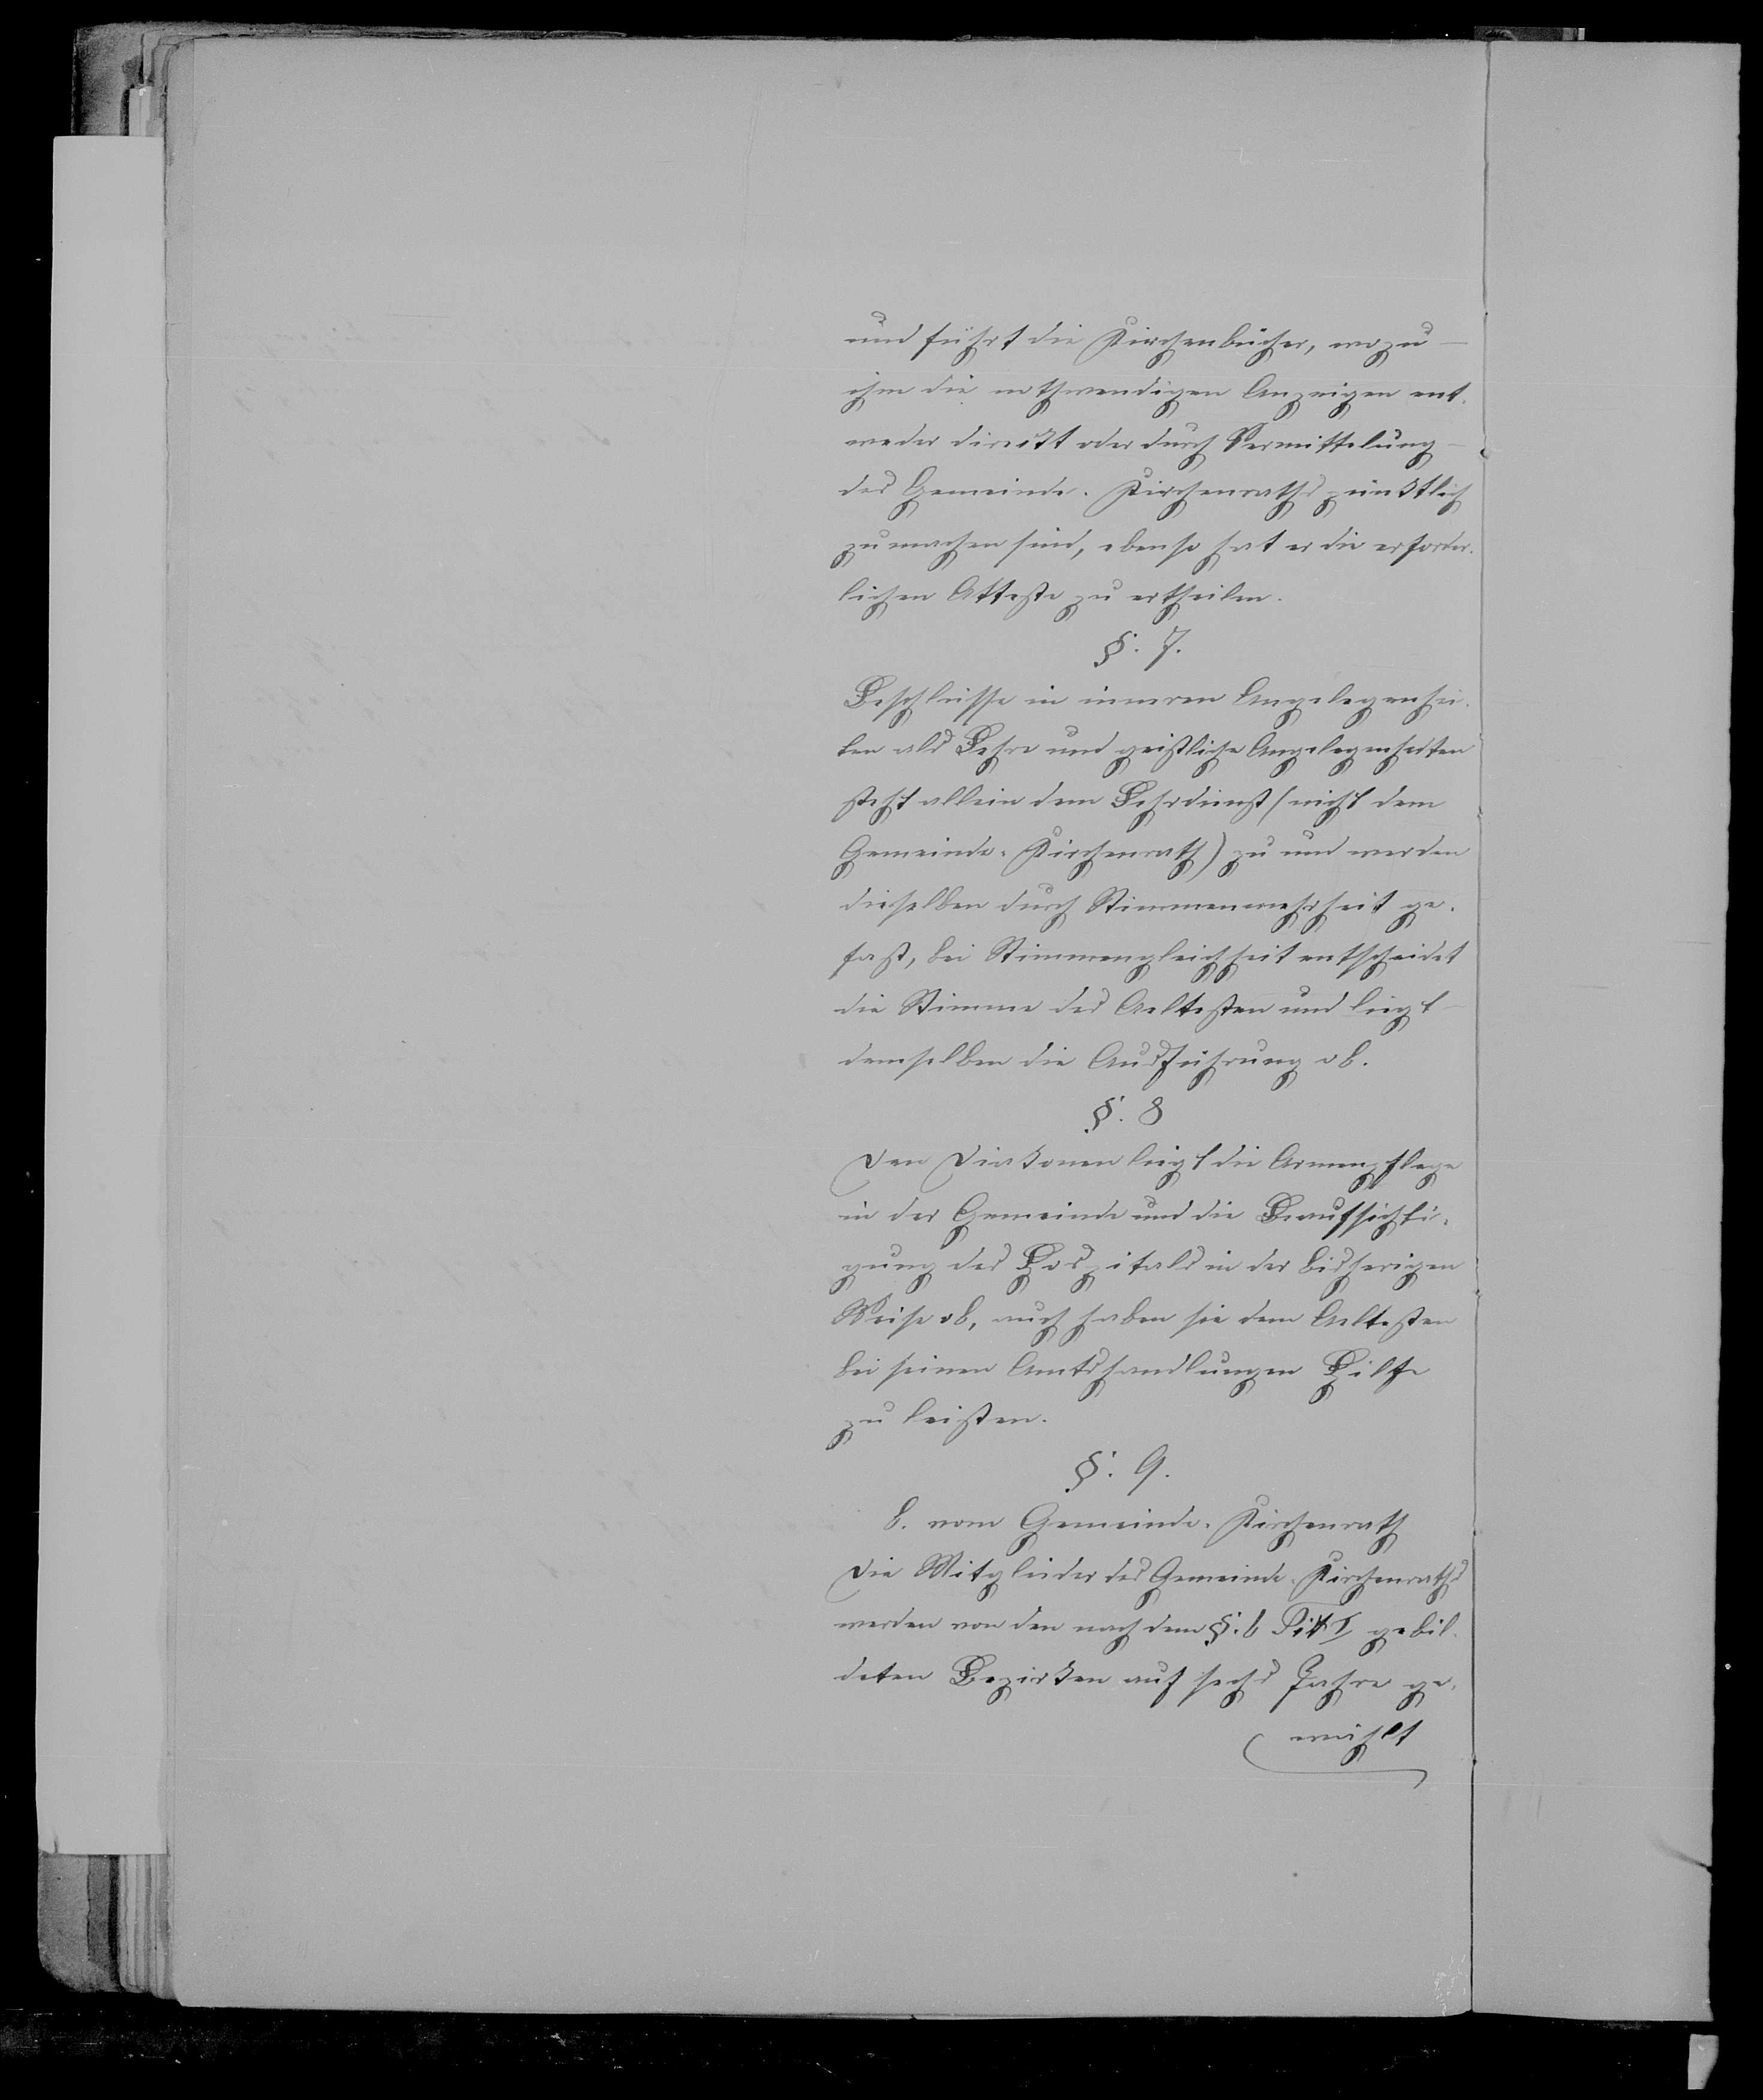 und führt die Kirchenbücher, wozu
ihm die nothwendigen Anzeigen ent-
weder direckt oder durch Vermittelung
des Gemeinde-Kirchenraths pünktlich
zu machen sind, ebenso hat er die erforder-
lichen Atteste zu ertheilen.
§. 7.
Beschlüsse in inneren Angelegenhei-
ten als Lehre und geistliche Angelegenheiten
steht allein dem Lehrdienst (nicht dem
Gemeinde-Kirchenrath) zu und werden
dieselben durch Stimmenmehrheit ge-
fast, bei Stimmengleichheit entscheidet
die Stimme des Aeltesten und liegt
demselben die Ausführung ob.
§. 8
Den Diakonen liegt die Armenpflege
in der Gemeinde und die Beaufsichti-
gung des Hospitals in der bisherigen
Weise ob, auch haben sie dem Aeltesten
bei seinen Amtshandlungen Hilfe
zu leisten.
§. 9.
b. vom Gemeinde-Kirchenrath
Die Mitglieder des Gemeinde-Kirchenraths
werden von den nach dem §. 6 Tit I gebil-
deten Bezirken auf sechs Jahre ge-
wählt